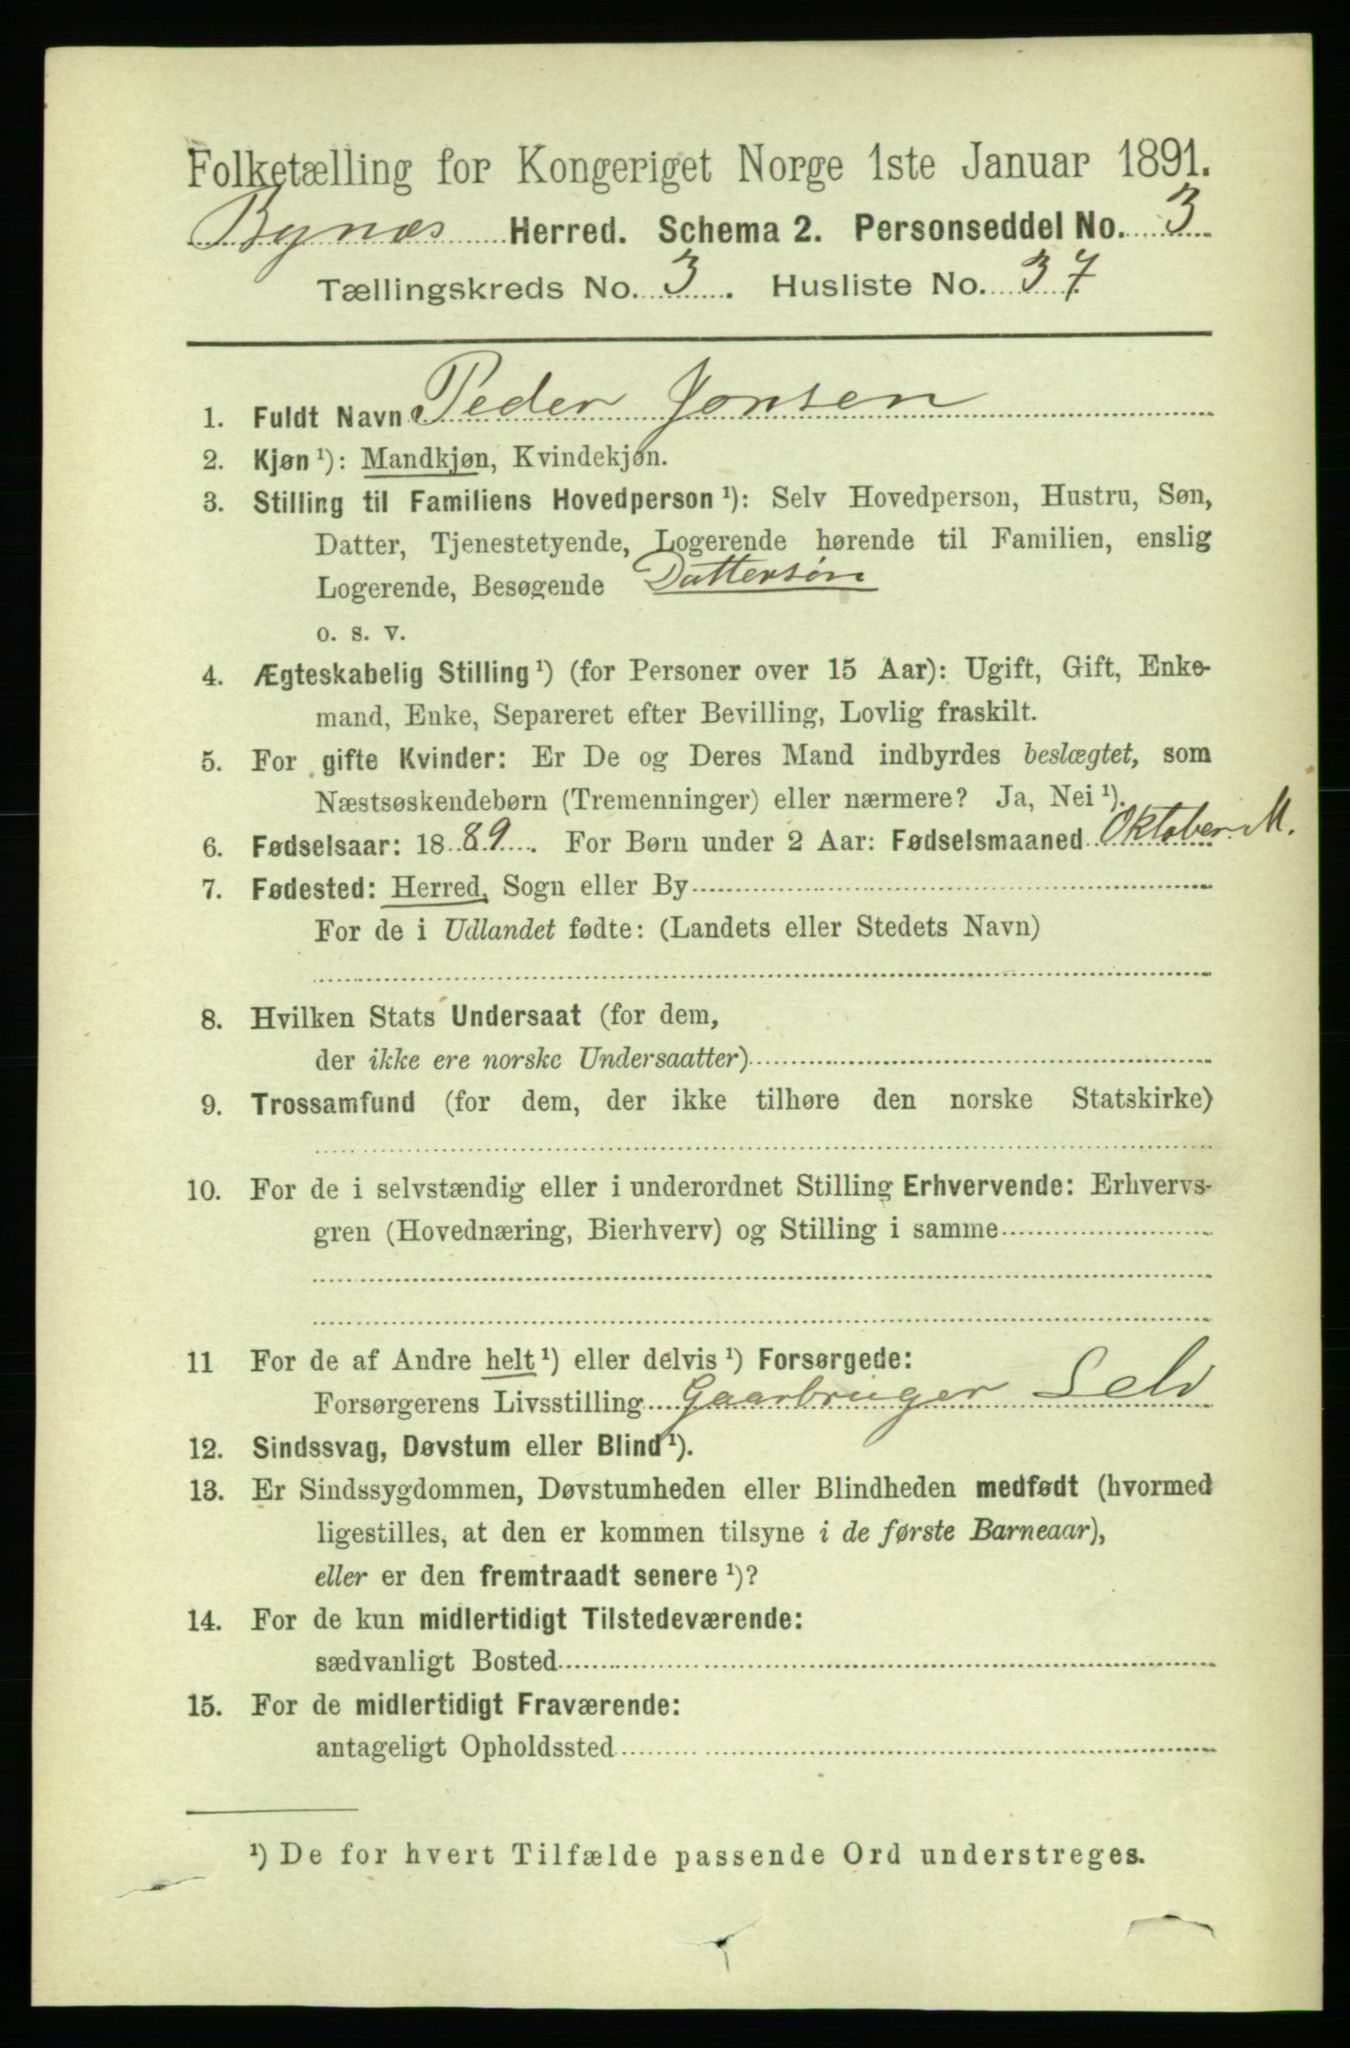 Folketælling for Kongeriget Norge 1ste Januar 1891.
Bynæs Herred. Schema 2. Personseddel No. 3
Tællingskreds No. 3. Husliste No. 37
1. Fuldt Navn Peder Jonsen
2. Kjøn ¹): Mandkjøn, Kvindekjøn.
3. Stilling til Familiens Hovedperson ¹): Selv Hovedperson, Hustru, Søn,
Datter, Tjenestetyende, Logerende hørende til Familien, enslig
Logerende, Besøgende Dattersøn
o. s. v.
4. Ægteskabelig Stilling ¹) (for Personer over 15 Aar): Ugift, Gift, Enke-
mand, Enke, Separeret efter Bevilling, Lovlig fraskilt.
5. For gifte Kvinder: Er De og Deres Mand indbyrdes beslægtet, som
Næstsøskendebørn (Tremenninger) eller nærmere? Ja, Nei ¹).
6. Fødselsaar: 1889. For Børn under 2 Aar: Fødselsmaaned Oktober M.
7. Fødested: Herred, Sogn eller By
For de i Udlandet fødte: (Landets eller Stedets Navn)
8. Hvilken Stats Undersaat (for dem,
der ikke ere norske Undersaatter)
9. Trossamfund (for dem, der ikke tilhøre den norske Statskirke)
10. For de i selvstændig eller i underordnet Stilling Erhvervende: Erhvervs-
gren (Hovednæring, Bierhverv) og Stilling i samme
11 For de af Andre helt ¹) eller delvis ¹) Forsørgede:
Forsørgerens Livsstilling Gaarbruger Selv
12. Sindssvag, Døvstum eller Blind ¹).
13. Er Sindssygdommen, Døvstumheden eller Blindheden medfødt (hvormed
ligestilles, at den er kommen tilsyne i de første Barneaar),
eller er den fremtraadt senere ¹)?
14. For de kun midlertidigt Tilstedeværende:
sædvanligt Bosted
15. For de midlertidigt Fraværende:
antageligt Opholdssted
¹) De for hvert Tilfælde passende Ord understreges.